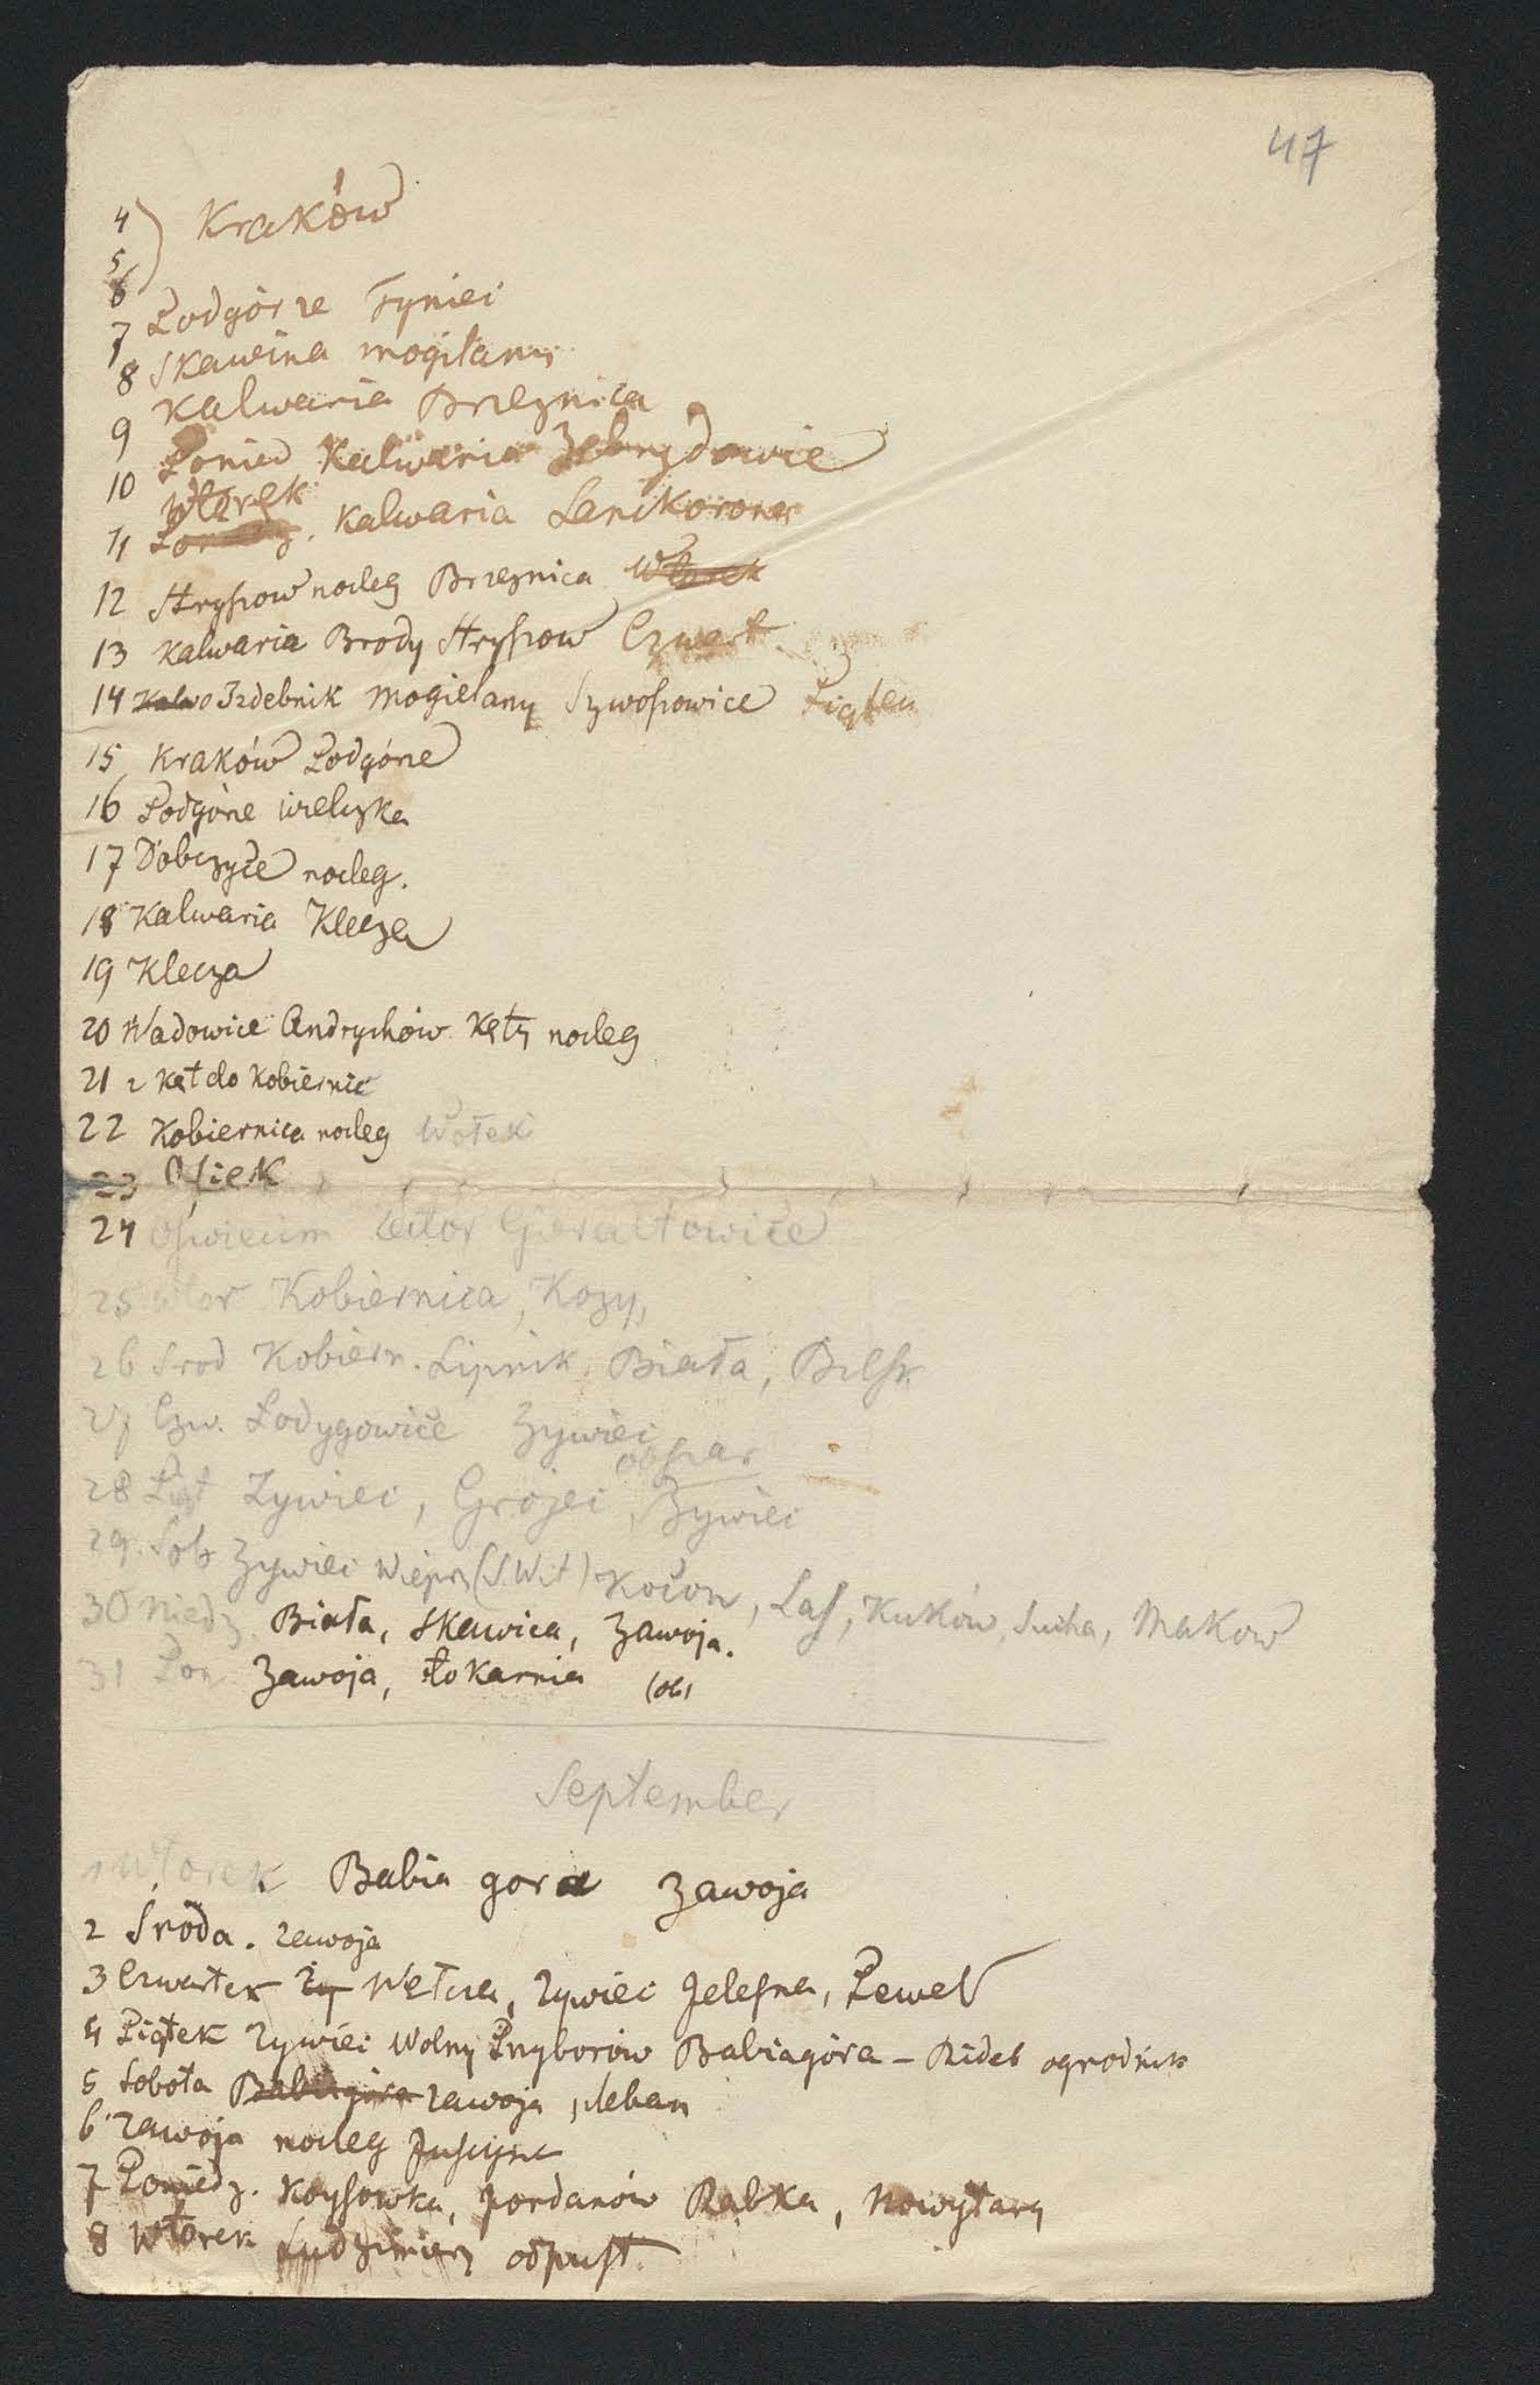 47
4 ) Kraków
5
6
7 Podgórze Tyniec
8 Skawina mogilany
9 Kalwaria Brzeznica
10 Ponied Kalwaria Zebrzydowice
Wtorek
11 Kalwaria Lanckorona
12 Stryszow nocleg Brzeznica Wtorek
13 Kalwaria Brody Stryszow Czwart.
14 Kalwa Izdebnik Mogielany Piątek
15 Kraków Podgórze
16 Podgórze wieliczka
17 Dobczyce nocleg.
18 Kalwaria Klecza
19 Klecza
20 Wadowice Andrychów Kęty nocleg
21 z Kęt do Kobiernic
22 Kobiernica nocleg Wołek
23 Osiek
24 Oswiecim Zator Gierałtowice
25 Wtor Kobiernica, Kozy,
26 Srod Kobiern. Lipnik, Biała, Bilsk
27 Czw. Łodygowice Zywiec
28 Piąt Zywiec, Grojec, Zywiec
29. Sob Zywiec Wieprz (S. Wit) Kocoń, Las, Kuków, Sucha, Makow
30 Niedz Biała, Skawica, Zawoja.
31 Pon Zawoja, tokarnia (ob)
September
1 Wtorek Babia gora Zawoja
2 Sroda. Zawoja
3 Czwartek Zy Wełcza, Zywiec Jelesna, Pewel
4 Piątek Zywiec Wolny Przyborów Babiagóra – Ridel ogrodnik
5 Sobota Babiagóra Zawoja, pleban
6 Zawoja nocleg Juszczyne
7 Poniedz. Krzysowka, Jordanów Rabka, Nowytarg
8 Wtorek Ludzimierz odpust